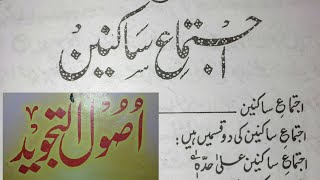 اجتماعِ ساکنین
اجتماعِ ساکنین
اجتماعِ ساکنین کی دو قسمیں ہیں:
اجتماعِ ساکنین علیٰ حدّہٖ
اُصُولُ التَّجْوِيد